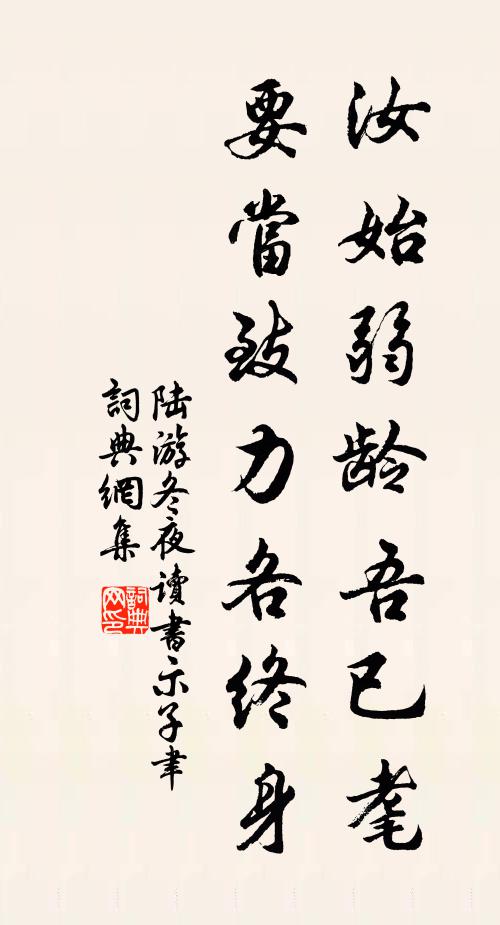 汝始弱龄吾已耄
要當致力各终身
陆游冬夜讀書示子聿
詞典網集
詞典网印